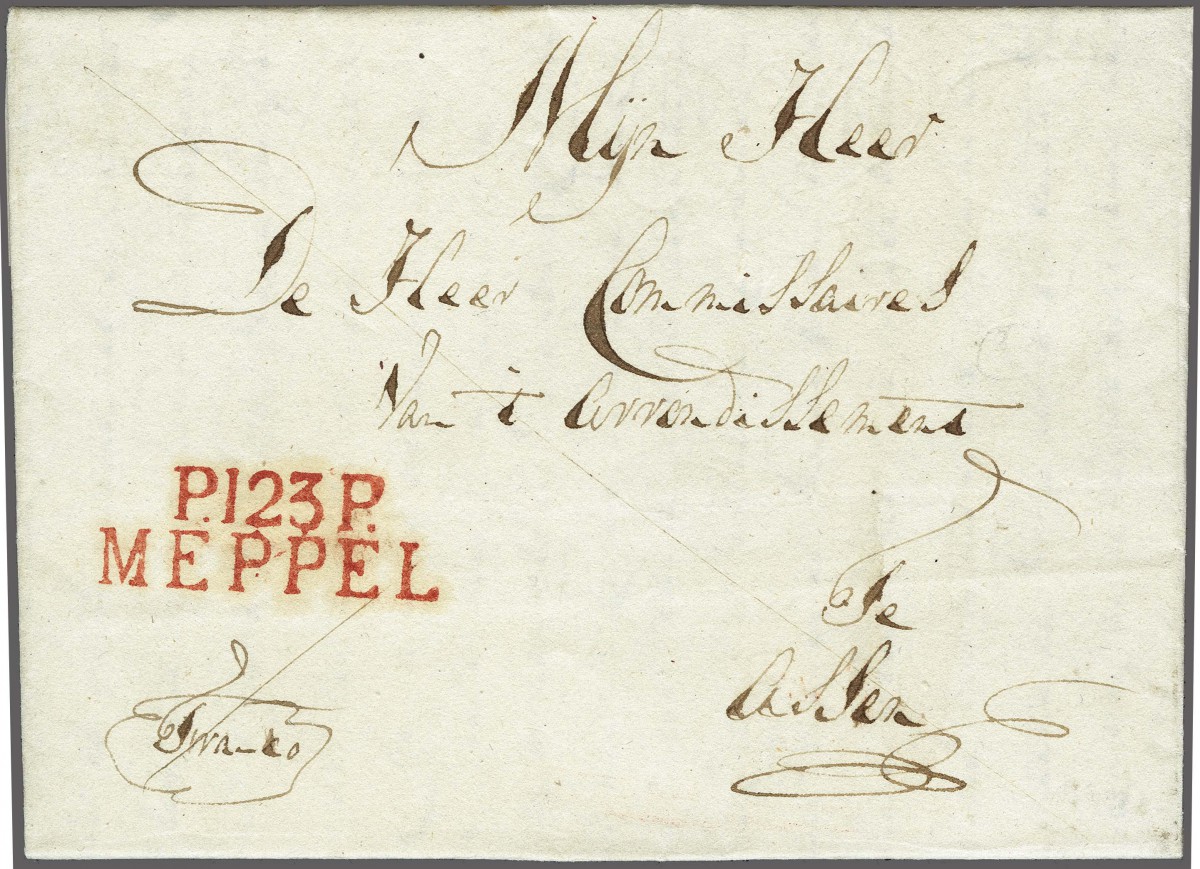 Mijn Heer
De Heer Commissaires
Van 't Arrondissement
P.123P.
MEPPEL
Te
Assen
Franco